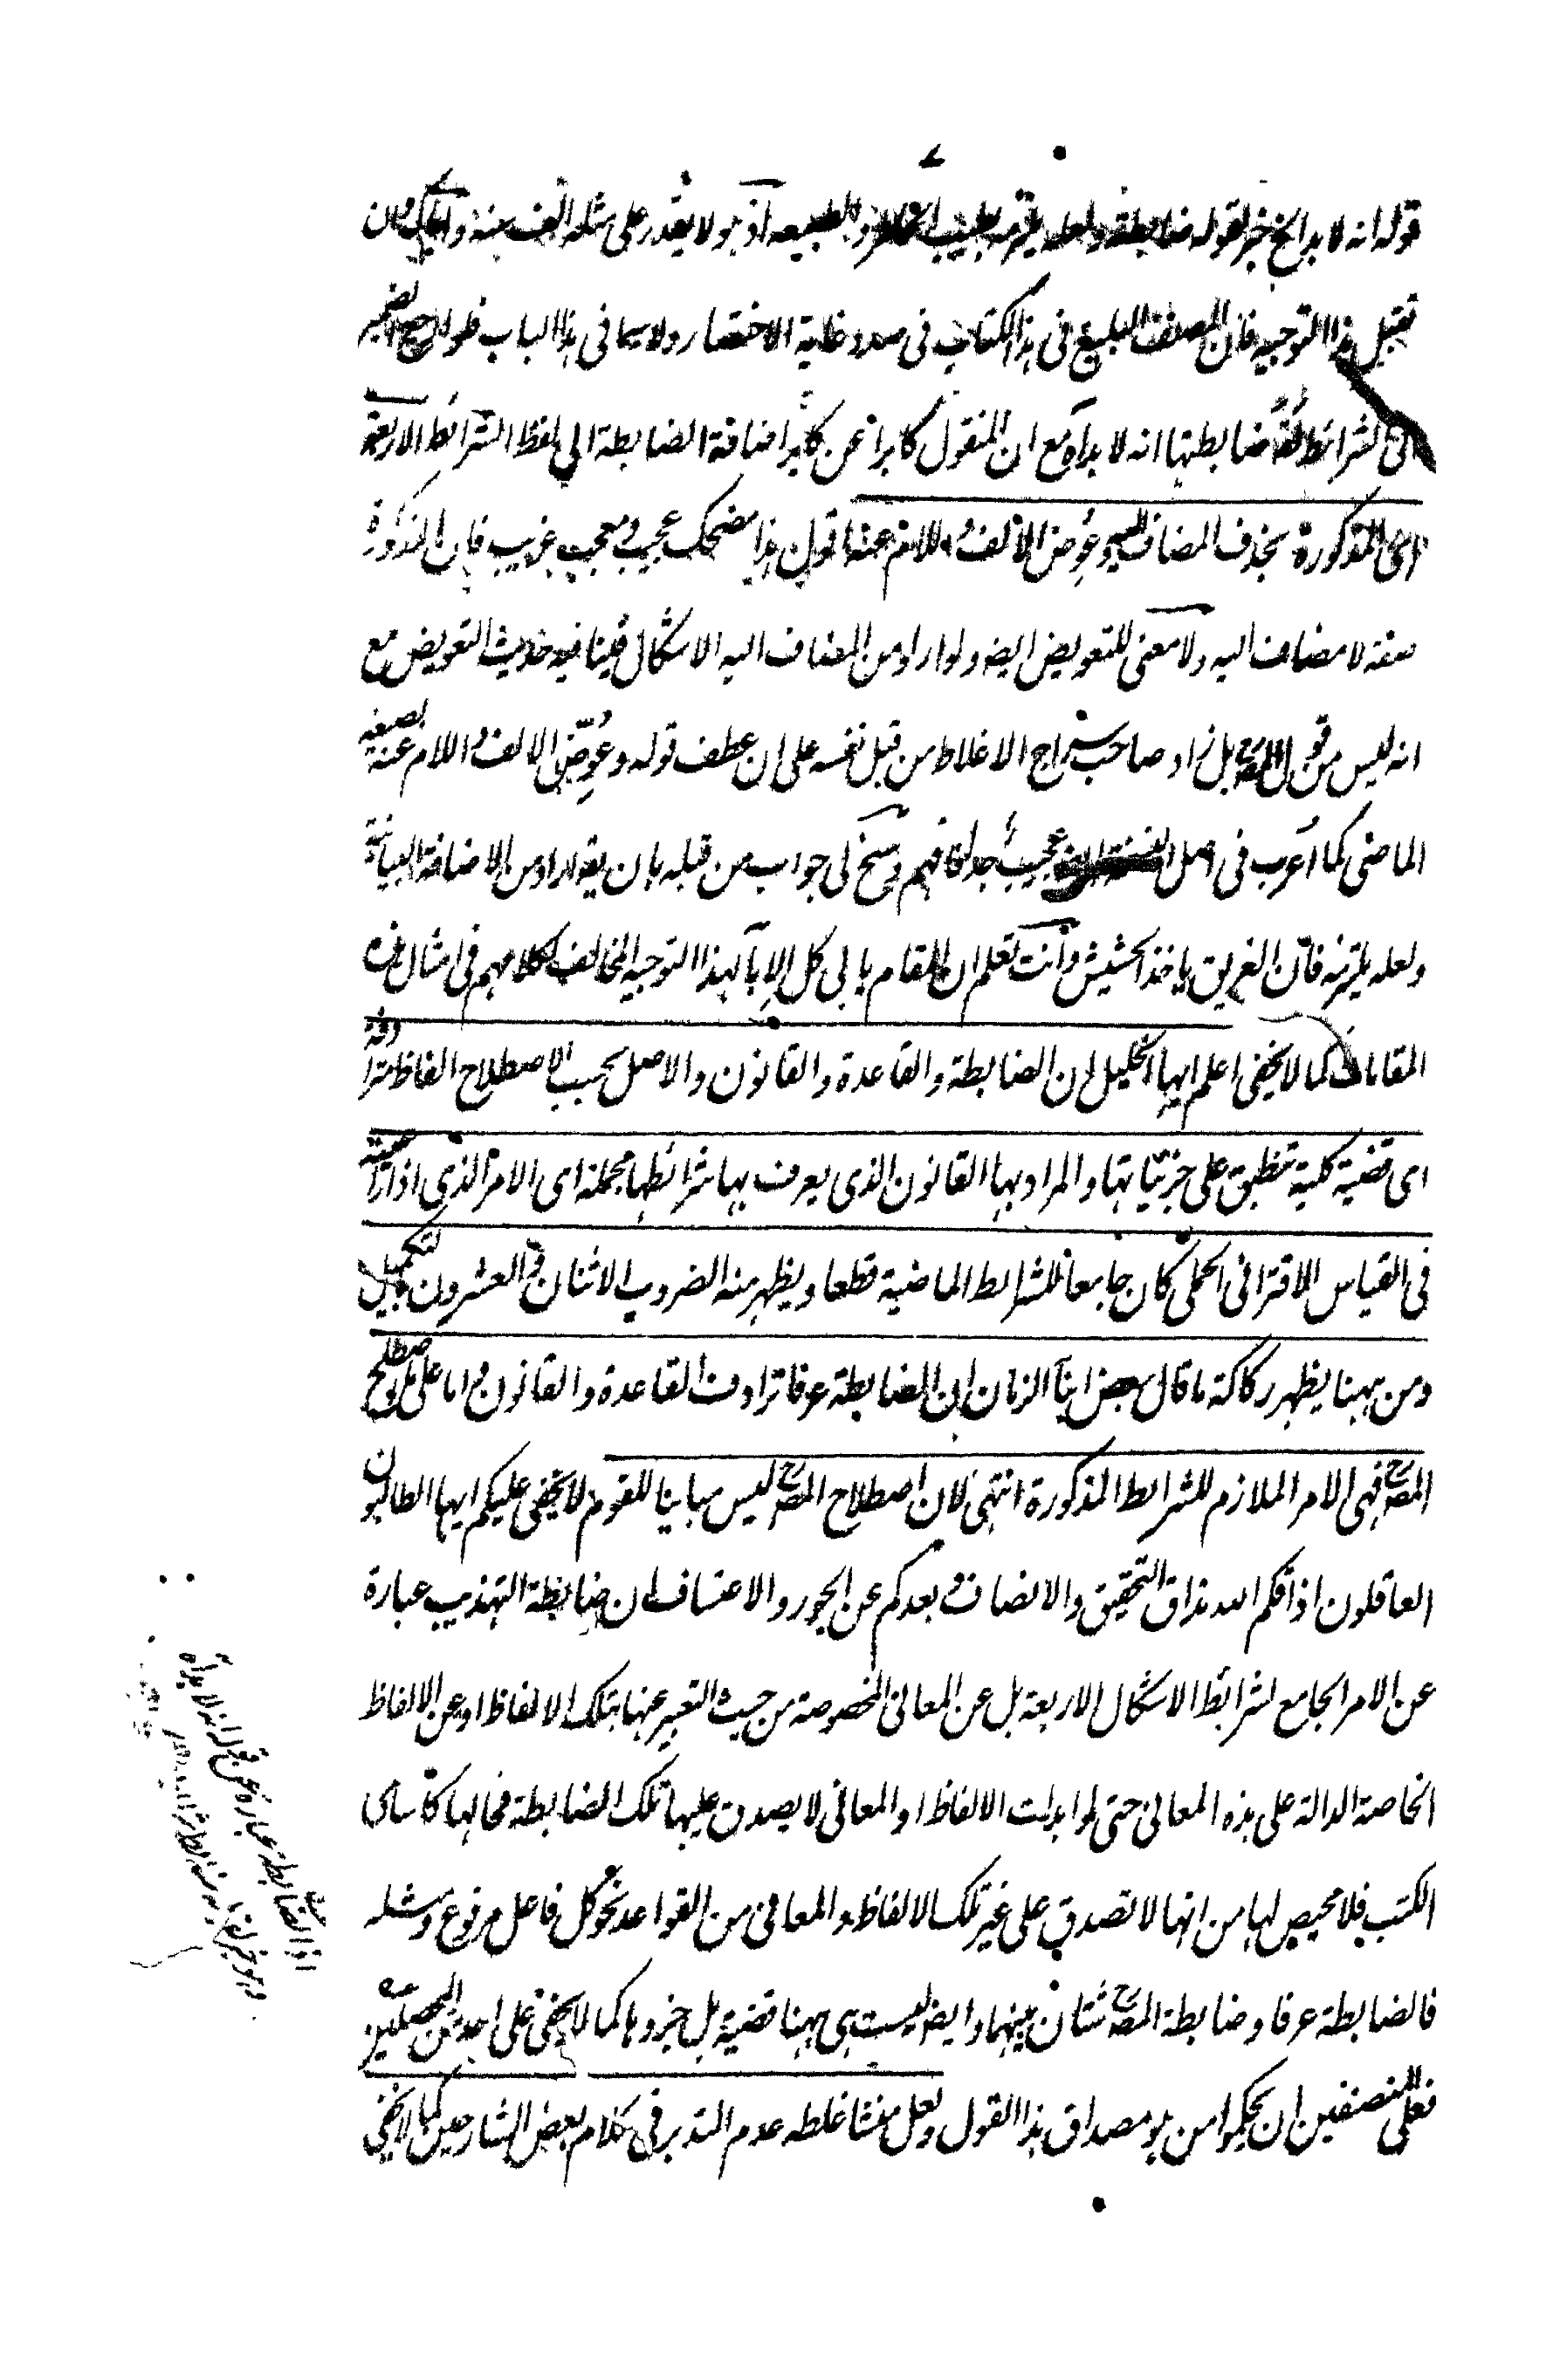 قوله انه لا بد الخ خبر لقوله ضابطة ولعله يلتزمه او هو لا يقدر على مثله الف سنة واياك وان
تقبل هذا التوجيه فان المصنف البليغ فى هذا الكتاب فى صدد غاية الاختصار ولا سيما فى هذا الباب فلو ارجع الضمير
الى الشرائط ضابطتها انه لا بد اه مع ان المنقول كابرا عن كابر اضافة الضابطة الى لفظ الشرائط الاربعة
اى المذكورة بحذف المضاف اليه وعوض الالف واللام عنه اقول هذا مضحك عجيب ومعجب غريب فان المذكورة
صفة لا مضاف اليه ولا معنى للتعويض ايضا ولو اراد من المضاف اليه الاشكال فينافيه حديث التعويض مع
انه ليس من قول المصنف بل زاد صاحب سراج الاغلاط من قبل نفسه على ان عطف قوله وعوض الالف واللام عنه بصيغة
الماضى كما اعرب فى اصل عجيب جدا فافهم وسنخ لى جواب من قبله بان يقو اراد من الاضافة البيانية
ولعله يلتزمه فان الغريق ياخذ الحشيش وانت تعلم ان المقام يابى كل الاباء لهذا التوجيه المخالف لكلامهم فى امثال هذه
المقامات كما لا يخفى اعلم ايها الخليل ان الضابطة والقاعدة والقانون والاصل بحسب الاصطلاح الفاظ مترادفة
اى قضية كلية تنطبق على جزئياتها والمراد بها القانون الذى يعرف بها شرائطها مجملة اى الامر الذى اذا راعيته
فى القياس الاقترانى الحملى كان جامعا للشرائط الماضية قطعا ويظهر منه الضروب الاثنان والعشرون
ومن ههنا يظهر ركاكة ما قال بعض ابناء الزمان ان الضابطة عرفا ترادف القاعدة والقانون واما على مصطلح
المصرح فهى الامر الملازم للشرائط المذكورة انتهى لان اصطلاح المصرح ليس مباينا للقوم لا يخفى عليكم ايها الطالبون
العاقلون اذاقكم الله مذاق التحقيق والانصاف وبعدكم عن الجور والاعتساف ان ضابطة التهذيب عبارة
عن الامر الجامع لشرائط الاشكال الاربعة بل عن المعانى المخصوصة من حيث التعبير عنها بتلك الالفاظ او عن الالفاظ
الخاصة الدالة على هذه المعانى حتى لو ابدلت الالفاظ او المعانى لا يصدق عليها تلك الضابطة فحالها كاسامى
الكتب فلا محيص لها من انها لا تصدق على غير تلك الالفاظ والمعانى من القواعد نحو كل فاعل مرفوع ومثله
فالضابطة عرفا وضابطة المصرح شتان بينهما وايضا ليست هى ههنا قضية بل جزوها كما لا يخفى على احد من المحصلين
فعلى المنصفين ان يحكموا من هو مصداق هذا القول ولعل منشا غلطه عدم التدبر فى كلام بعض الشارحين كما لا يخفى